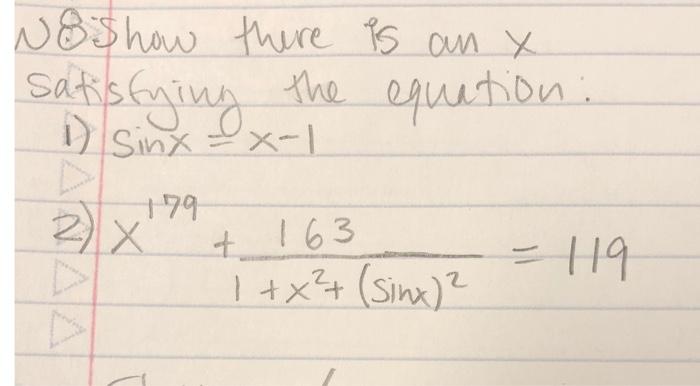 N8 Show there is an x
satisfying the equation:
1) sinx = x-1
2) x^179 + 163/(1+x²+(sinx)²) = 119